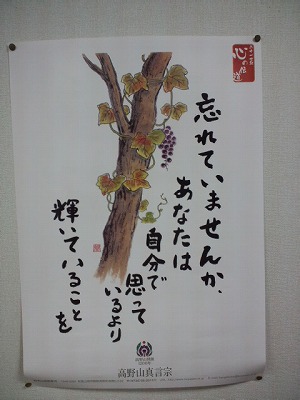 忘れていませんか、
あなたは
自分で
思って
いるより
輝いていることを
心の伝道
高野山真言宗